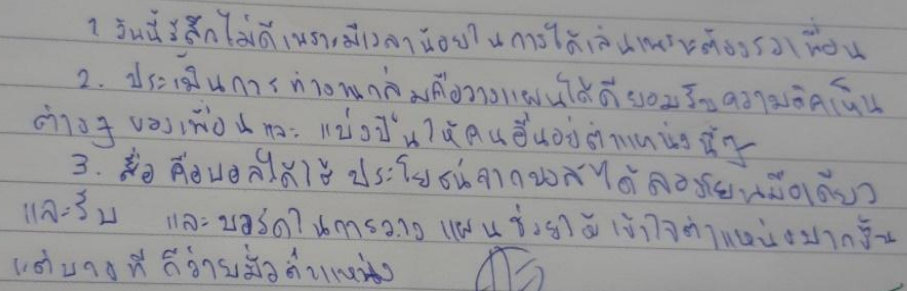 1 วันนี้รู้สึกไม่ดีเพราะมีเวลาน้อยในการได้เล่นเพราะต้องรอเพื่อน
2. ประเมินการทำงานกลุ่มคือวางแผนได้ดียอมรับความคิดเห็น
ต่างๆ ของเพื่อนและ แบ่งปันให้คนอื่นอยู่ตำแหน่งนั้นๆ
3. สื่อ คือบอลได้ใช้ ประโยชน์จากบอลได้ลองโยนมือเดียว
และรับ และบอร์ดในการวาง แผนช่วยให้เข้าใจตำแหน่งมากขึ้น
แต่บางที ก็วาย ตำแหน่ง